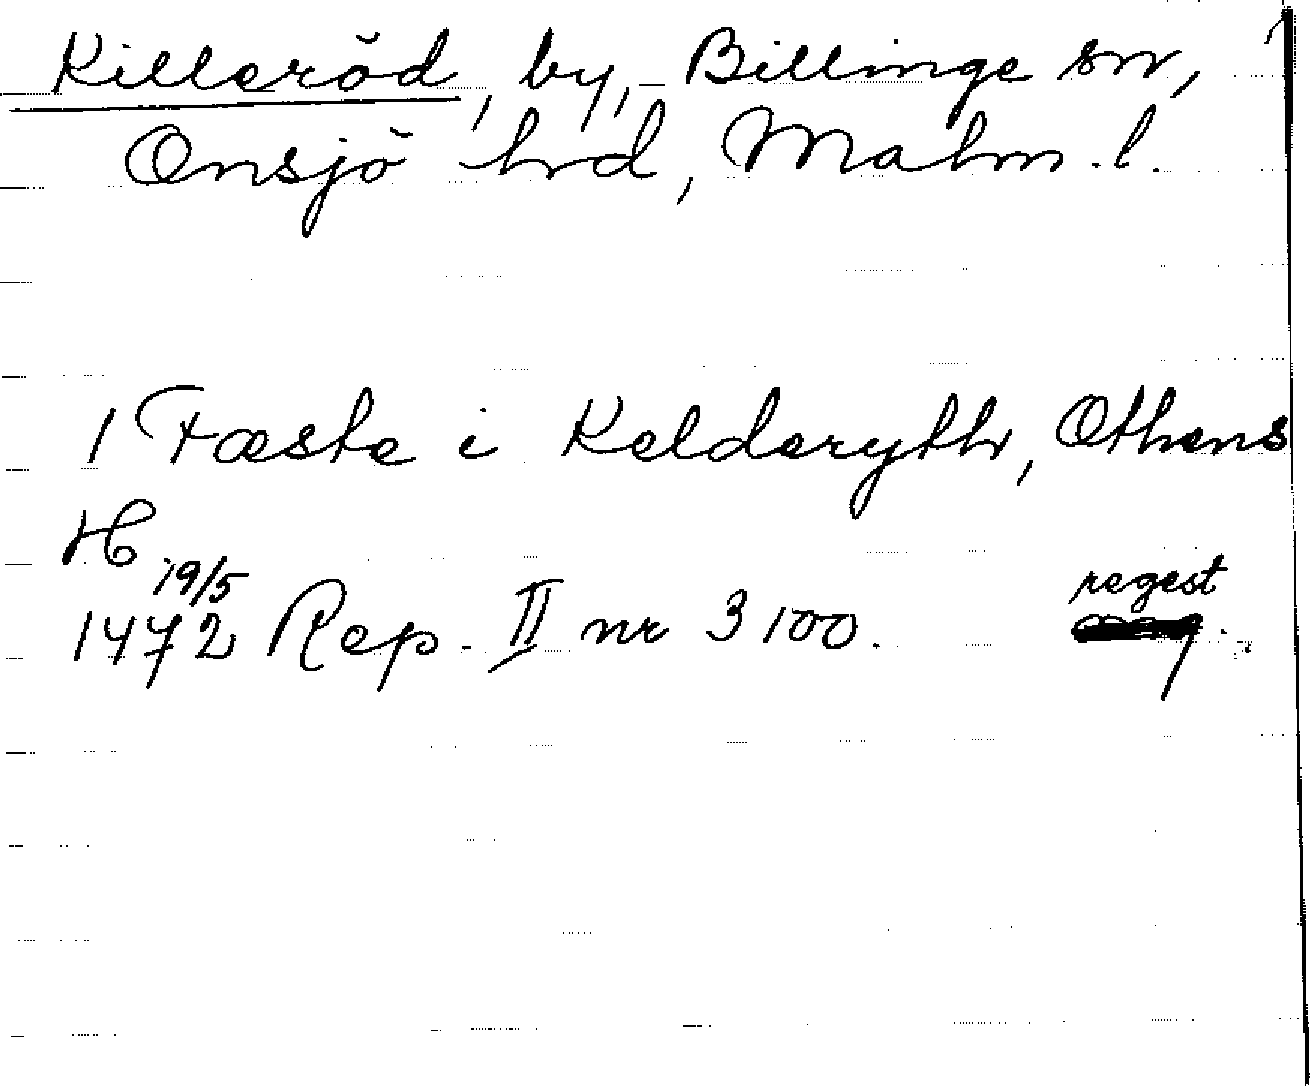 Killeröd, by, Billinge sn,
Onsjö hrd, Malm. l.
1 Fæste i Kelderyth, Othens
H
19/5
1472 Rep. II nr 3100. regest